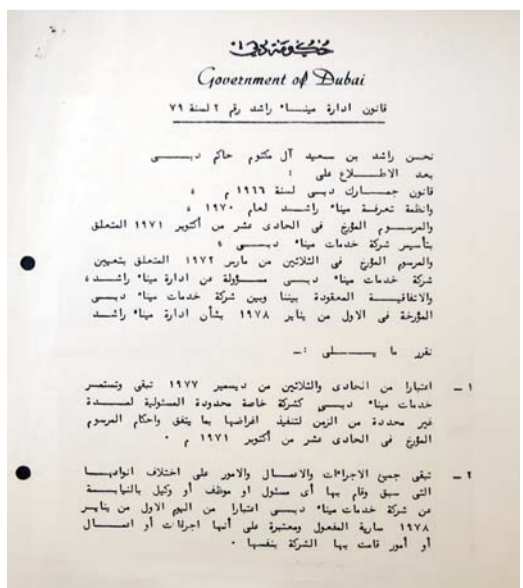 حكومة دبي
Government of Dubai
قانون ادارة مينـــاء راشد رقم ٢ لسنة ٧٩
نحـن راشد بن سعيد آل مكتوم حاكم دبـــــي
بعد الاطـــلاع على :
قانون جمــارك دبـى لسنة ١٩٦٦ م ،
وانظمة تعرفـة مينـاء راشــد لعام ١٩٧٠ ،
والمرســوم المؤرخ فى الحادى عشر من أكتوبر ١٩٧١ المتعلق
بتأسيس شركة خدمات مينـاء دبـــى ،
والمرسوم المؤرخ فى الثلاثين من مارس ١٩٧٢ المتعلق بتعيين
شركة خدمات مينـاء دبـى مســؤولة عن ادارة مينـاء راشـد،
والاتفاقيــة المعقودة بيننا وبين شركة خدمات مينـاء دبــى
المؤرخة فى الاول من يناير ١٩٧٨ بشأن ادارة مينـاء راشــد
نقرر ما يـــلى :-
١ - اعتبارا من الحادى والثلاثين من ديسمبر ١٩٧٧ تبقى وتستمر
خدمات مينـاء دبـــى كشركة خاصة محدودة المسئولية لمــدة
غير محددة من الزمن لتنفيذ اغراضها بما يتفق واحكام المرسوم
المؤرخ فى الحادى عشر من أكتوبر ١٩٧١ م .
٢ - تبقى جميع الاجراءات والاعمــال والامور على اختلاف انواعهــا
التى سبق وقام بها أى مسئول او موظف أو وكيل بالنيابـــة
عن شركة خدمات مينـاء دبــى اعتبارا من اليوم الاول من ينايـر
١٩٧٨ سارية المفعول ومعتبرة على أنهـا اجراءات أو اعمـــال
أو أمور قامت بها الشركة بنفسها .